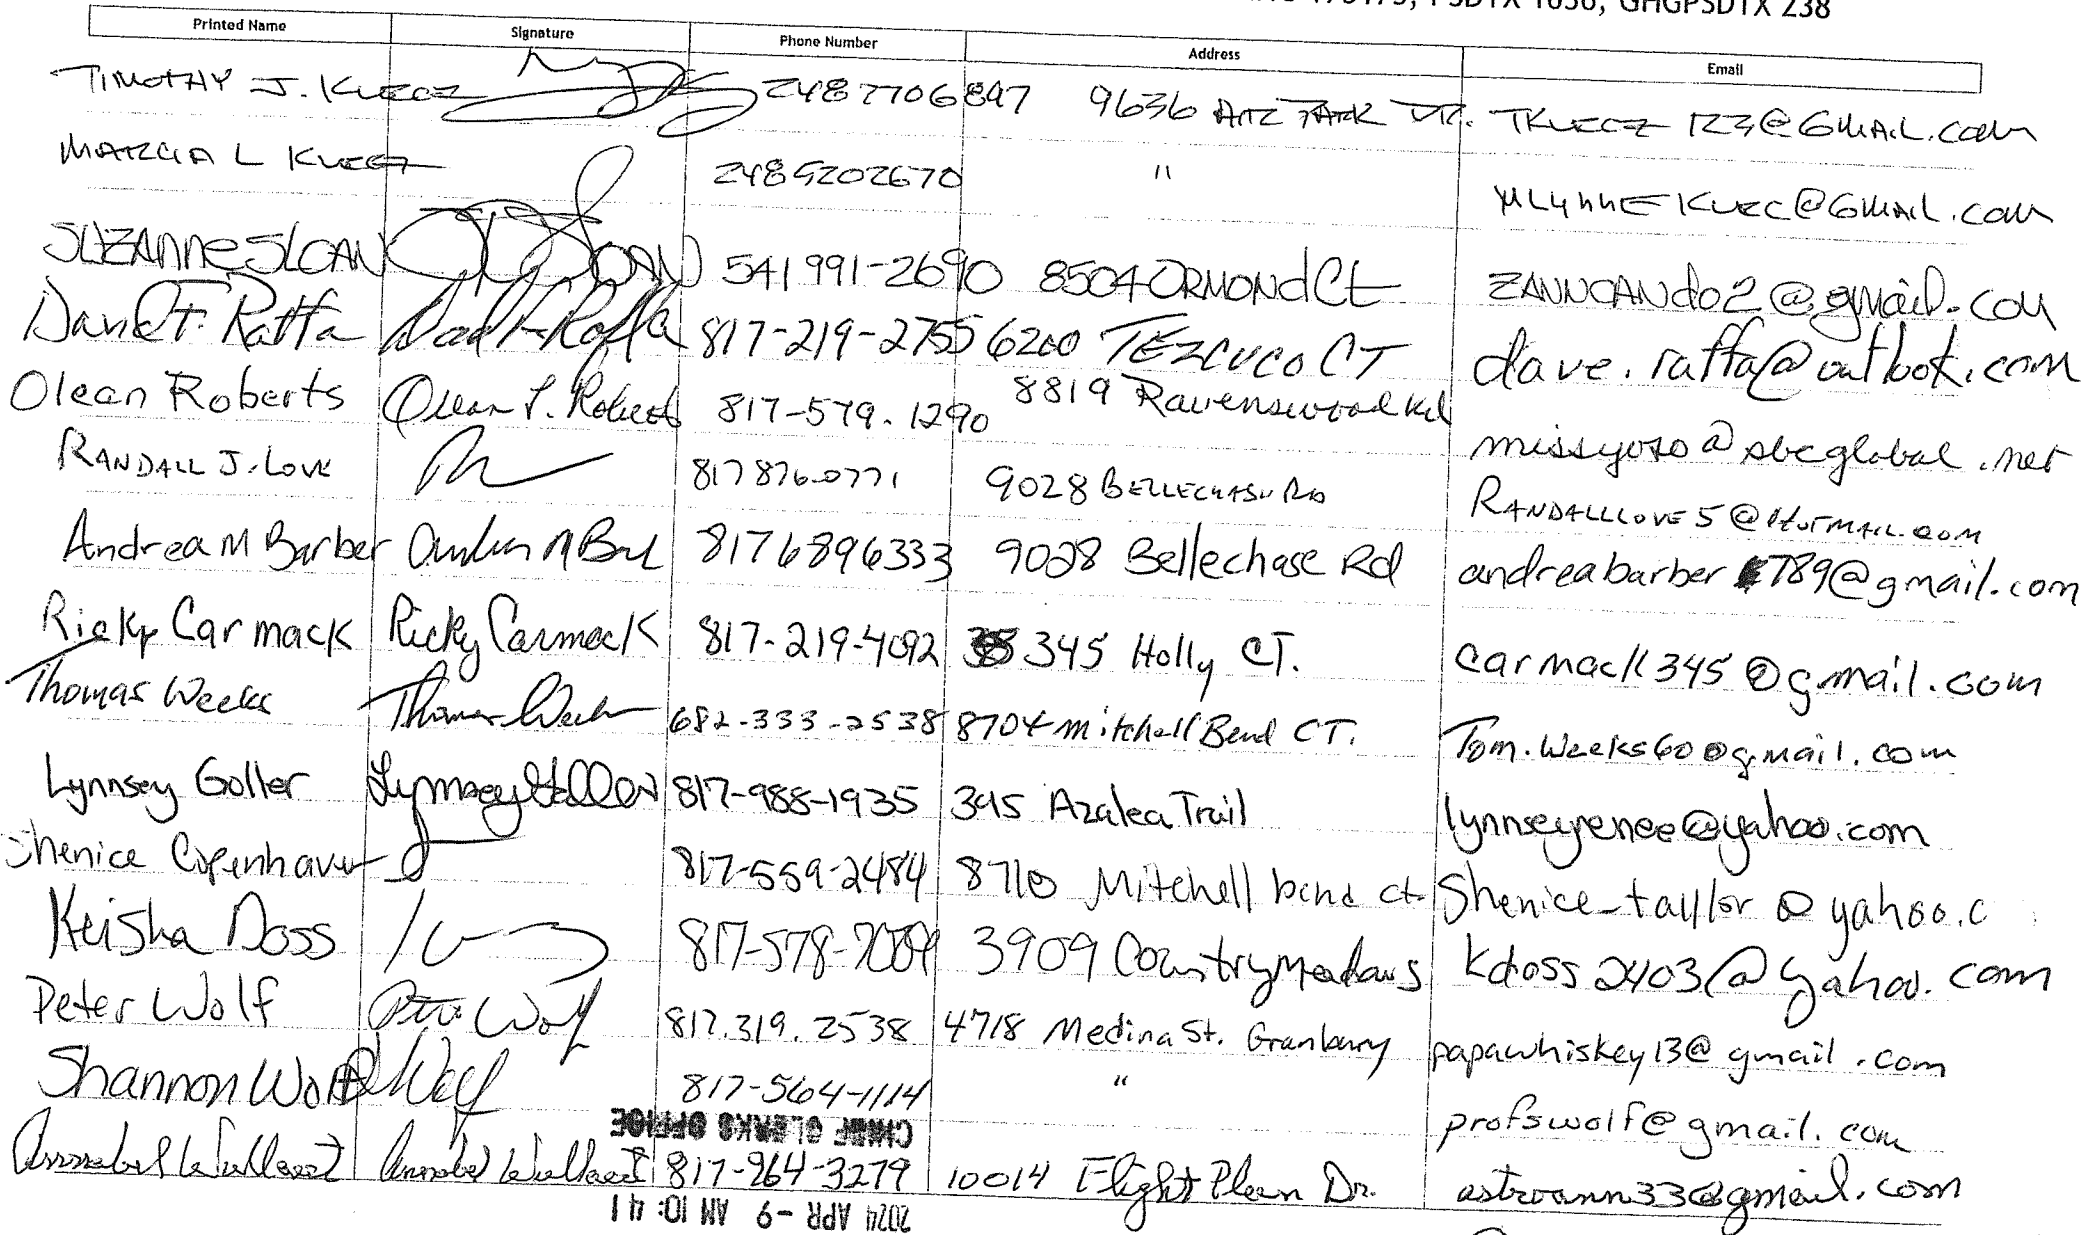 PSDTX 1636, GHGPSDTX 238
Printed Name Signature Phone Number Address Email
TIMOTHY J. KLECZ 2487706897 9636 AIR PARK DR. TKLECZ123@GMAIL.COM
MARCIA L KLECZ 2485202670 " MLYNNEKLEC@GMAIL.COM
SUZANNE SLOAN SLOAN 541 991-2690 8504 ORMOND Ct ZANNCANdo2@gmail.com
David F. Raffa David F. Raffa 817-219-2755 6200 TEZCUCO CT dave.raffa@outlook.com
Olean Roberts Olean L. Roberts 817-579-1290 8819 Ravenswood Rd missyoto@sbcglobal.net
RANDALL J. LOVE 817 876-0771 9028 BELLECHASE RD RANDALLLOVE5@HOTMAIL.COM
Andrea M Barber Andrea M Barb 8176896333 9028 Bellechase Rd andreabarber789@gmail.com
Ricky Carmack Ricky Carmack 817-219-4092 345 Holly CT. carmack345@gmail.com
Thomas Weeks Thomas Weeks 682-333-2538 8704 Mitchell Bend CT. Tom.Weeks60@gmail.com
Lynnsey Goller Lynnsey Goller 817-988-1935 395 Azalea Trail lynnseyrenee@yahoo.com
Shenice Copenhaver 817-559-2484 8710 Mitchell bend ct Shenice_taylor@yahoo.c
Keisha Doss 817-578-7009 3909 Country Meadows kdoss2403@yahoo.com
Peter Wolf Peter Wolf 817.319.2538 4718 Medina St. Granbury papawhiskey13@gmail.com
Shannon Wolf SWolf 817-564-1114 " profswolf@gmail.com
CHIEF CLERKS OFFICE
Annabel Wallaert Annabel Wallaert 817-964-3279 10014 Flight Plan Dr. astroann33@gmail.com
2024 APR -9 AM 10:41